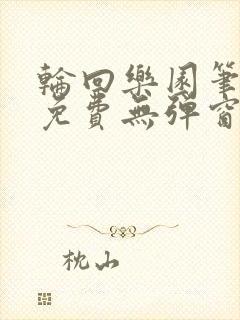 輪回樂園筆
免費無彈窗
枕山